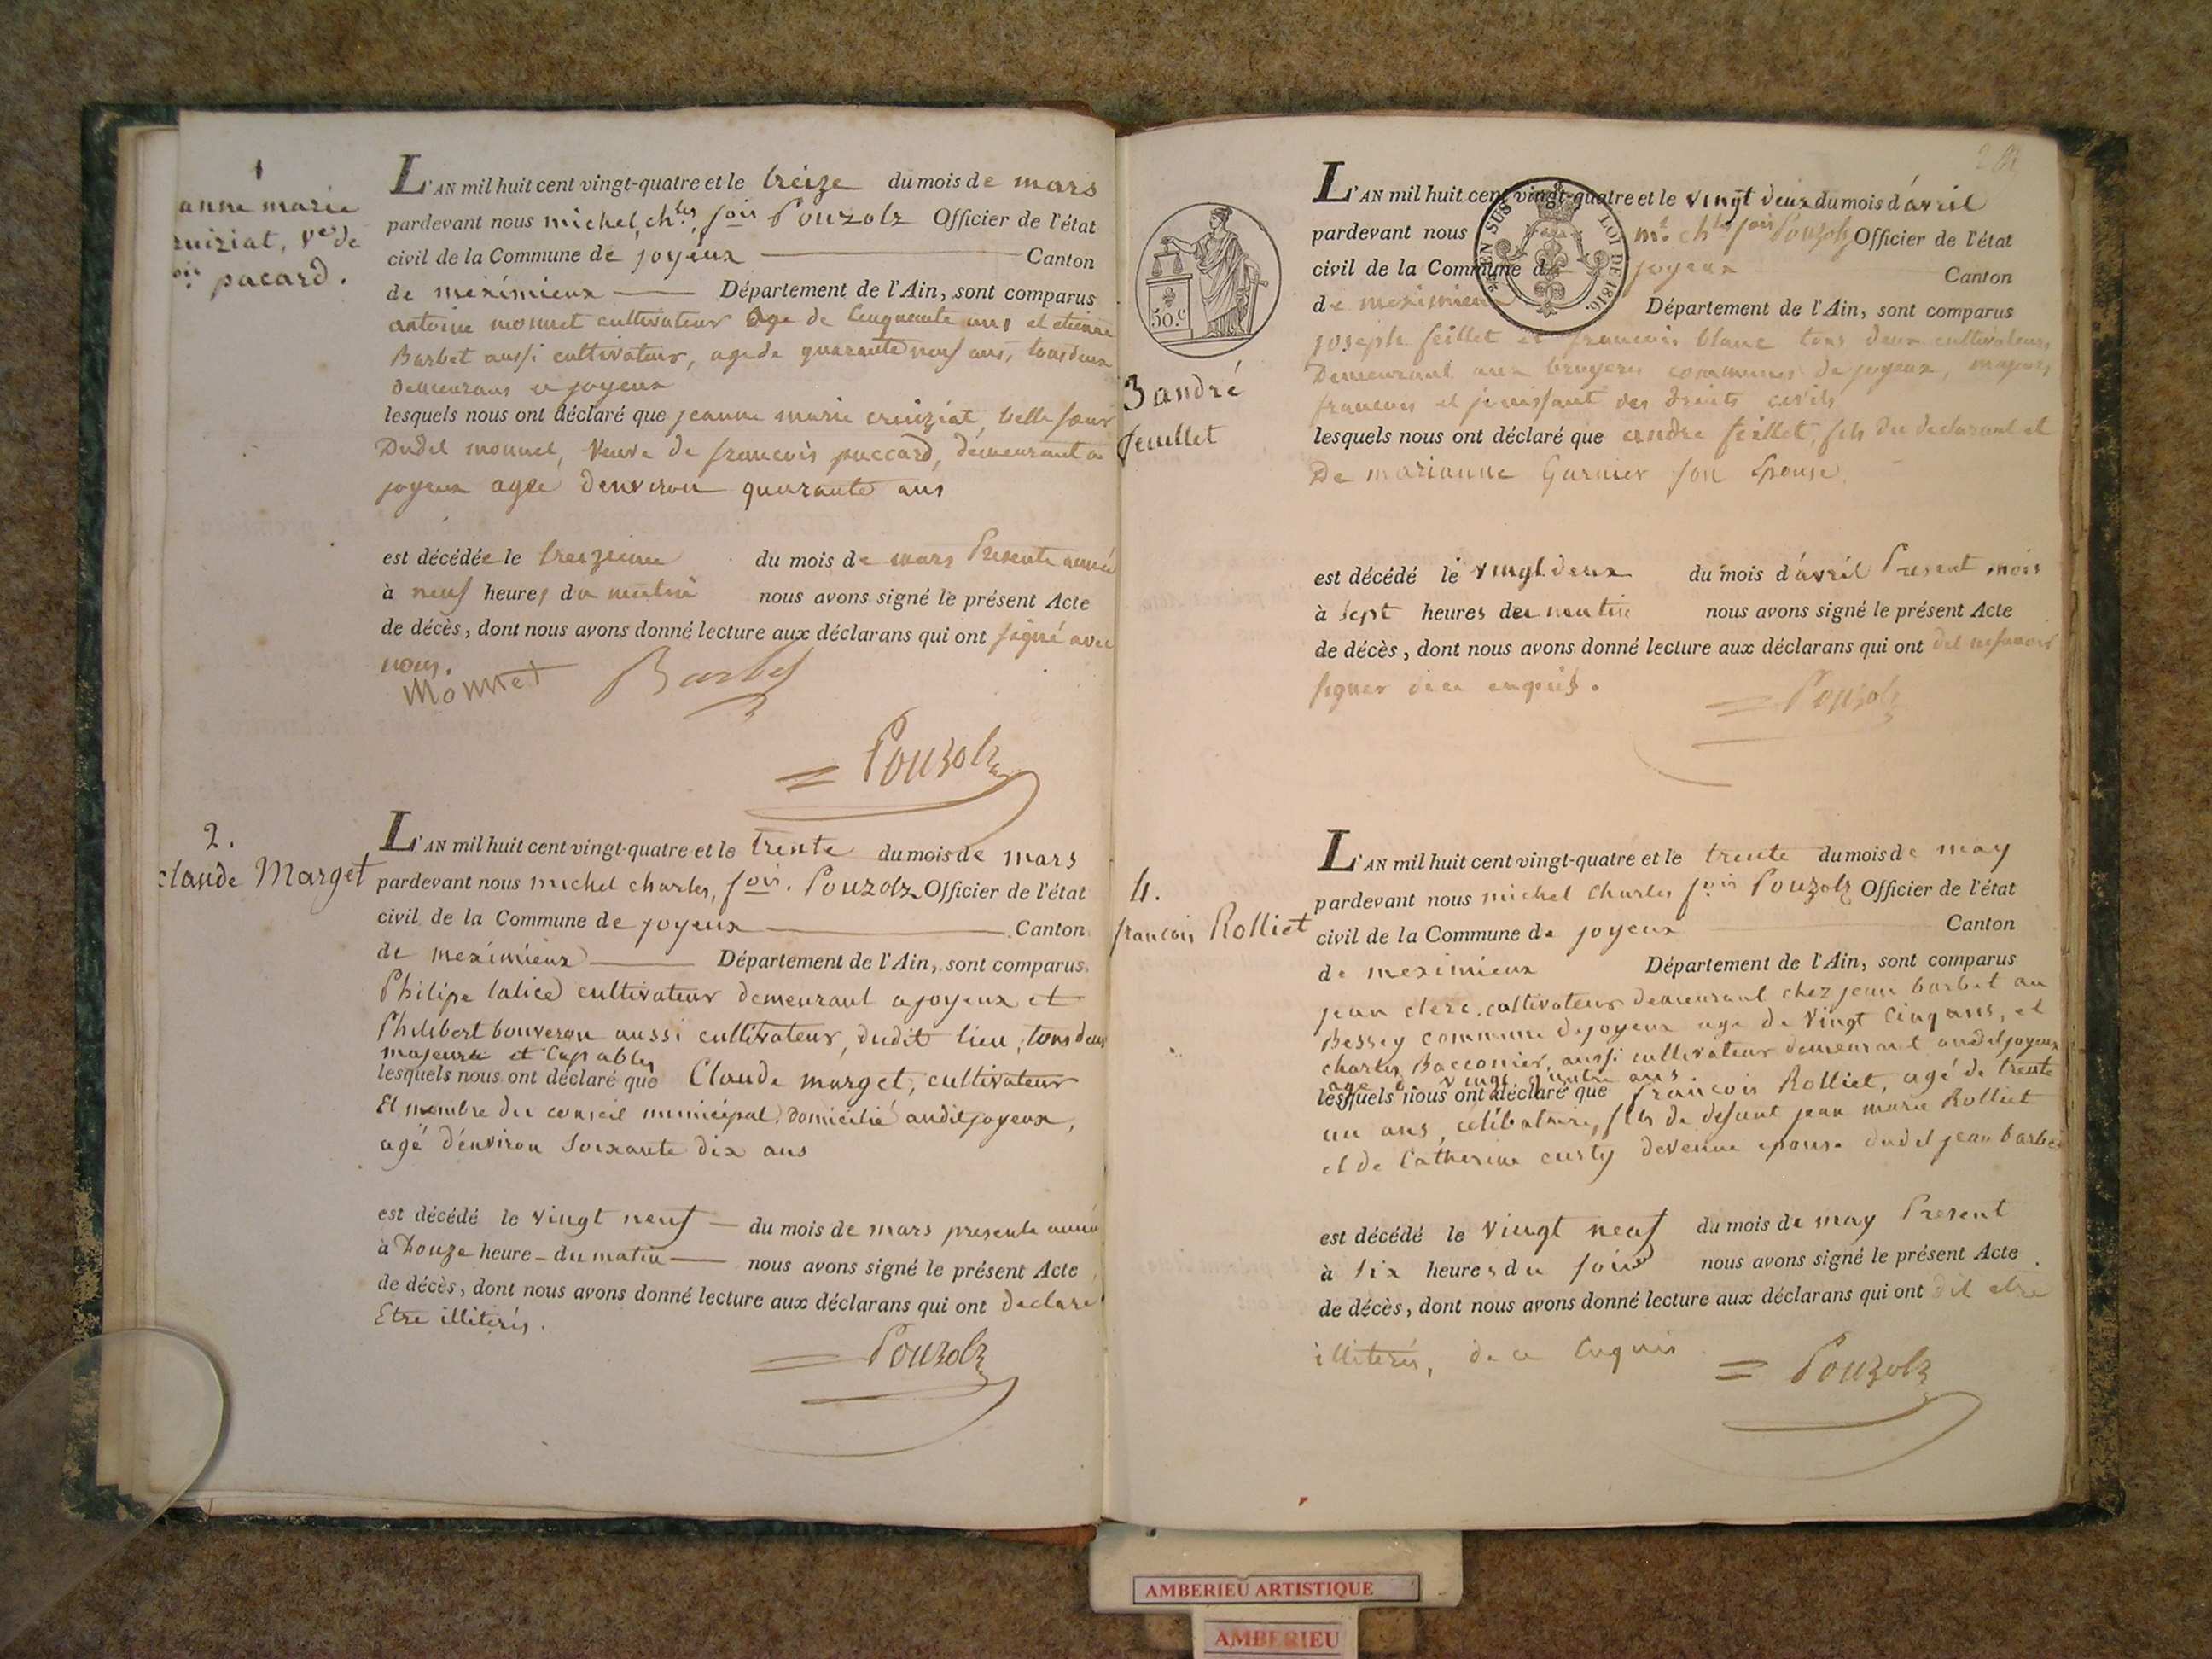 1
anne marie
cruiziat, Ve de
ois pacard.
L'AN mil huit cent vingt-quatre et le treize du mois de mars
pardevant nous michel, chles, fois Pouzolz Officier de l'état
civil de la Commune de joyeux Canton
de meximieux Département de l'Ain, sont comparus
antoine monnet cultivateur age de cinquante ans et etienne
Barbet aussi cultivateur, age de quarante neuf ans, tous deux
demeurans a joyeux
lesquels nous ont déclaré que jeanne marie cruiziat, belle sœur
Dudit monnet, veuve de francois paccard, demeurant a
joyeux agée d'environ quarante ans
est décédée le treizieme du mois de mars Presente année
à neuf heures du matin nous avons signé le présent Acte
de décès, dont nous avons donné lecture aux déclarans qui ont signé avec
nous.
Monnet Barbet
Pouzolz
2.
claude Marget
L'AN mil huit cent vingt-quatre et le trente du mois de mars
pardevant nous michel charles, fois. Pouzolz Officier de l'état
civil de la Commune de joyeux Canton
de meximieux Département de l'Ain, sont comparus
Philipe lalice cultivateur demeurant a joyeux et
Philibert bouveron aussi cultivateur, dudit lieu, tous deux
majeurs et capables
lesquels nous ont déclaré que Claude marget, cultivateur
Et membre du conseil municipal, domicilié audit joyeux,
agé d'environ soixante dix ans
est décédé le vingt neuf du mois de mars presente année
à Douze heure du matin nous avons signé le présent Acte
de décès, dont nous avons donné lecture aux déclarans qui ont declaré
Etre illiterés.
Pouzolz
50.c
EN SUS LOI DE 1816.
3 andré
feuillet
L'AN mil huit cent vingt-quatre et le vingt deux du mois d'avril
pardevant nous ml. chles fois Pouzolz Officier de l'état
civil de la Commune de joyeux Canton
de meximieux Département de l'Ain, sont comparus
joseph feillet et francois blanc tous deux cultivateurs
Demeurant aux bruyeres communes de joyeux, majeurs
francais et jouissant des droits civils
lesquels nous ont déclaré que andre feillet, fils du declarant et
De marianne Garnier son Epouse
est décédé le vingt deux du mois d'avril Present mois
à sept heures du matin nous avons signé le présent Acte
de décès, dont nous avons donné lecture aux déclarans qui ont dit ne savoir
signer de ce enquis.
Pouzolz
4.
francois Rolliet
L'AN mil huit cent vingt-quatre et le trente du mois de may
pardevant nous michel charles fois Pouzolz Officier de l'état
civil de la Commune de joyeux Canton
de meximieux Département de l'Ain, sont comparus
jean clerc, cultivateur demeurant chez jean barbet au
Bessey commune de joyeux age de vingt cinq ans, et
charles Bacconier, aussi cultivateur demeurant audit joyeux
age de vingt quatre ans
lesquels nous ont déclaré que francois Rolliet, agé de trente
un ans, célibataire, fils de defunt jean marie Rolliet
et de Catherine curty devenue epouse dudit jean barbet
est décédé le vingt neuf du mois de may Present
à six heures du soir nous avons signé le présent Acte
de décès, dont nous avons donné lecture aux déclarans qui ont dit etre
illiterés, de ce Enquis
Pouzolz
AMBERIEU ARTISTIQUE
AMBERIEU